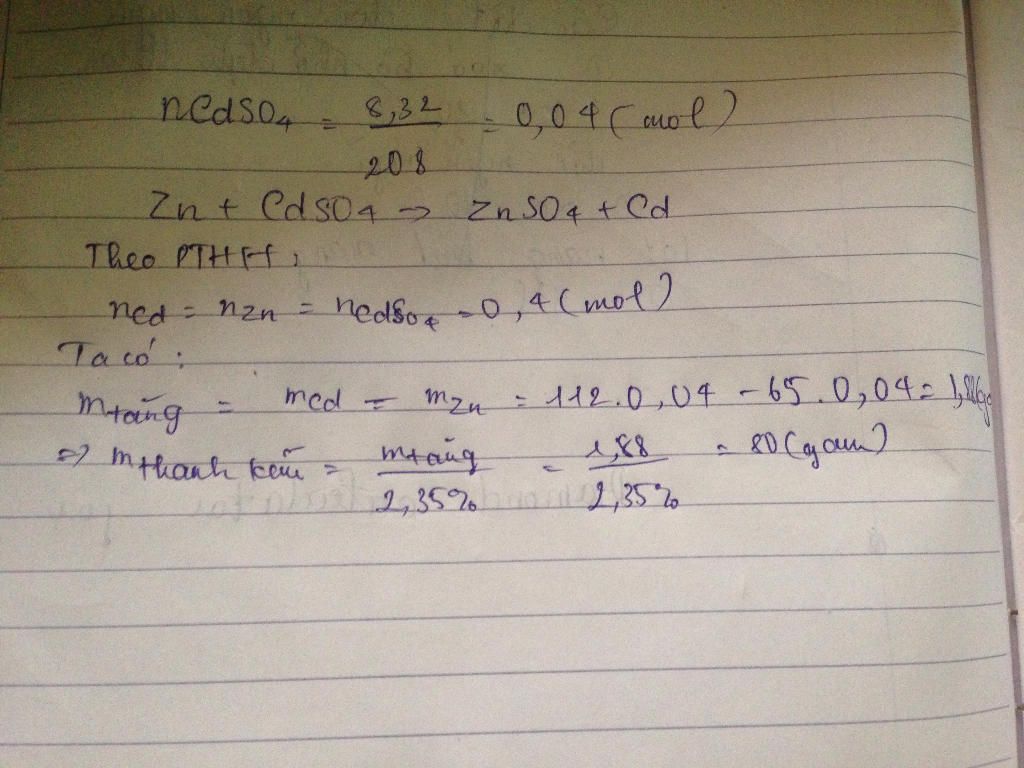 nCdSO4 = 8,32 / 208 = 0,04 (mol)
Zn + CdSO4 → ZnSO4 + Cd
Theo PTHH,
nCd = nZn = nCdSO4 = 0,4 (mol)
Ta có:
mtăng = mCd = mZn = 112.0,04 - 65.0,04 =
=> mthanh kẽm = mtăng / 2,35% = 1,88 / 2,35% = 80 (gam)